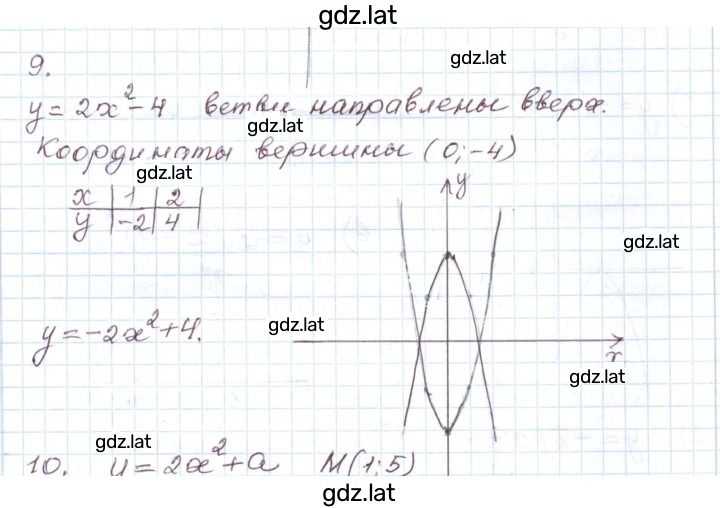 gdz.lat
9.
gdz.lat
y = 2x² - 4 ветви направлены вверх.
gdz.lat
Координаты вершины (0; -4)
gdz.lat
x | 1 | 2 |
y | -2 | 4 |
y
gdz.lat
y = -2x² + 4.
gdz.lat
x
gdz.lat
gdz.lat
10. y = 2x² + a M(1; 5)
gdz.lat